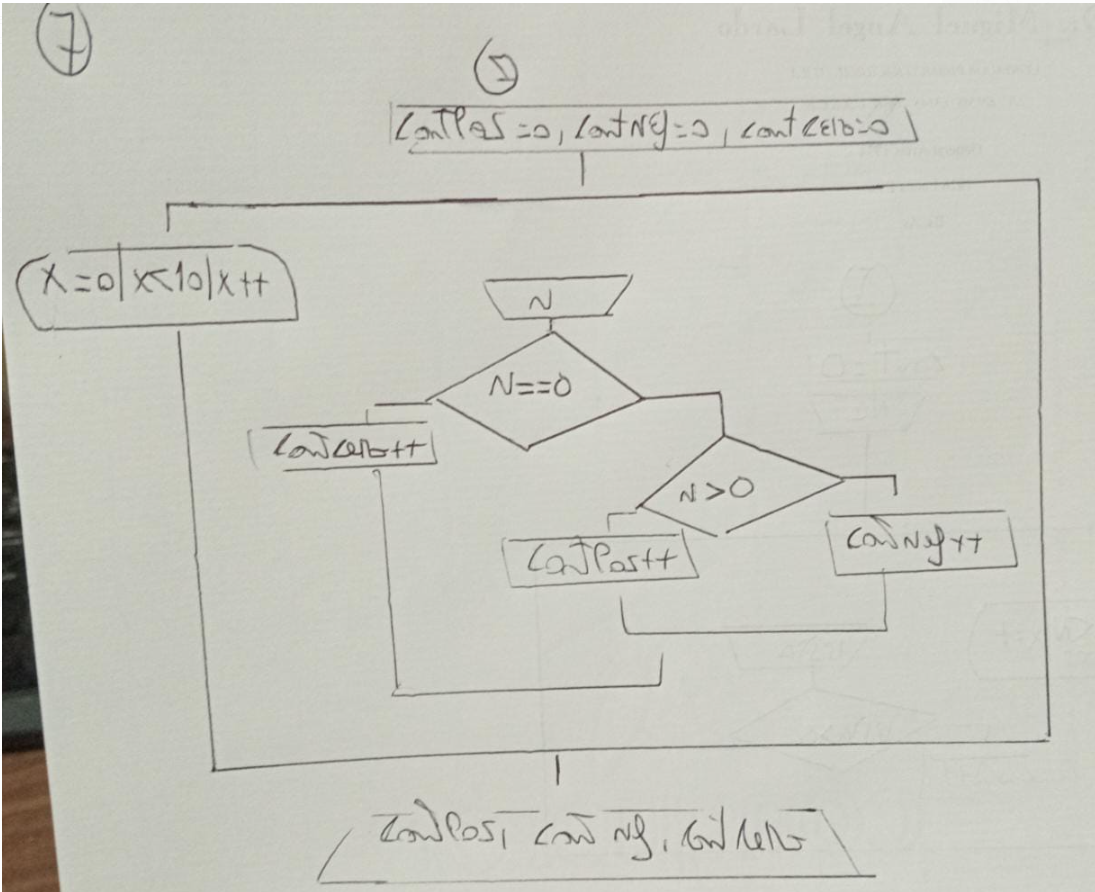 7
ContPos=0, ContNeg=0, contCero=0
X=0|x<10|x++
N
N==0
ContCero++
N>0
ContPos++
ContNeg++
ContPos, Cont Neg, ContCero